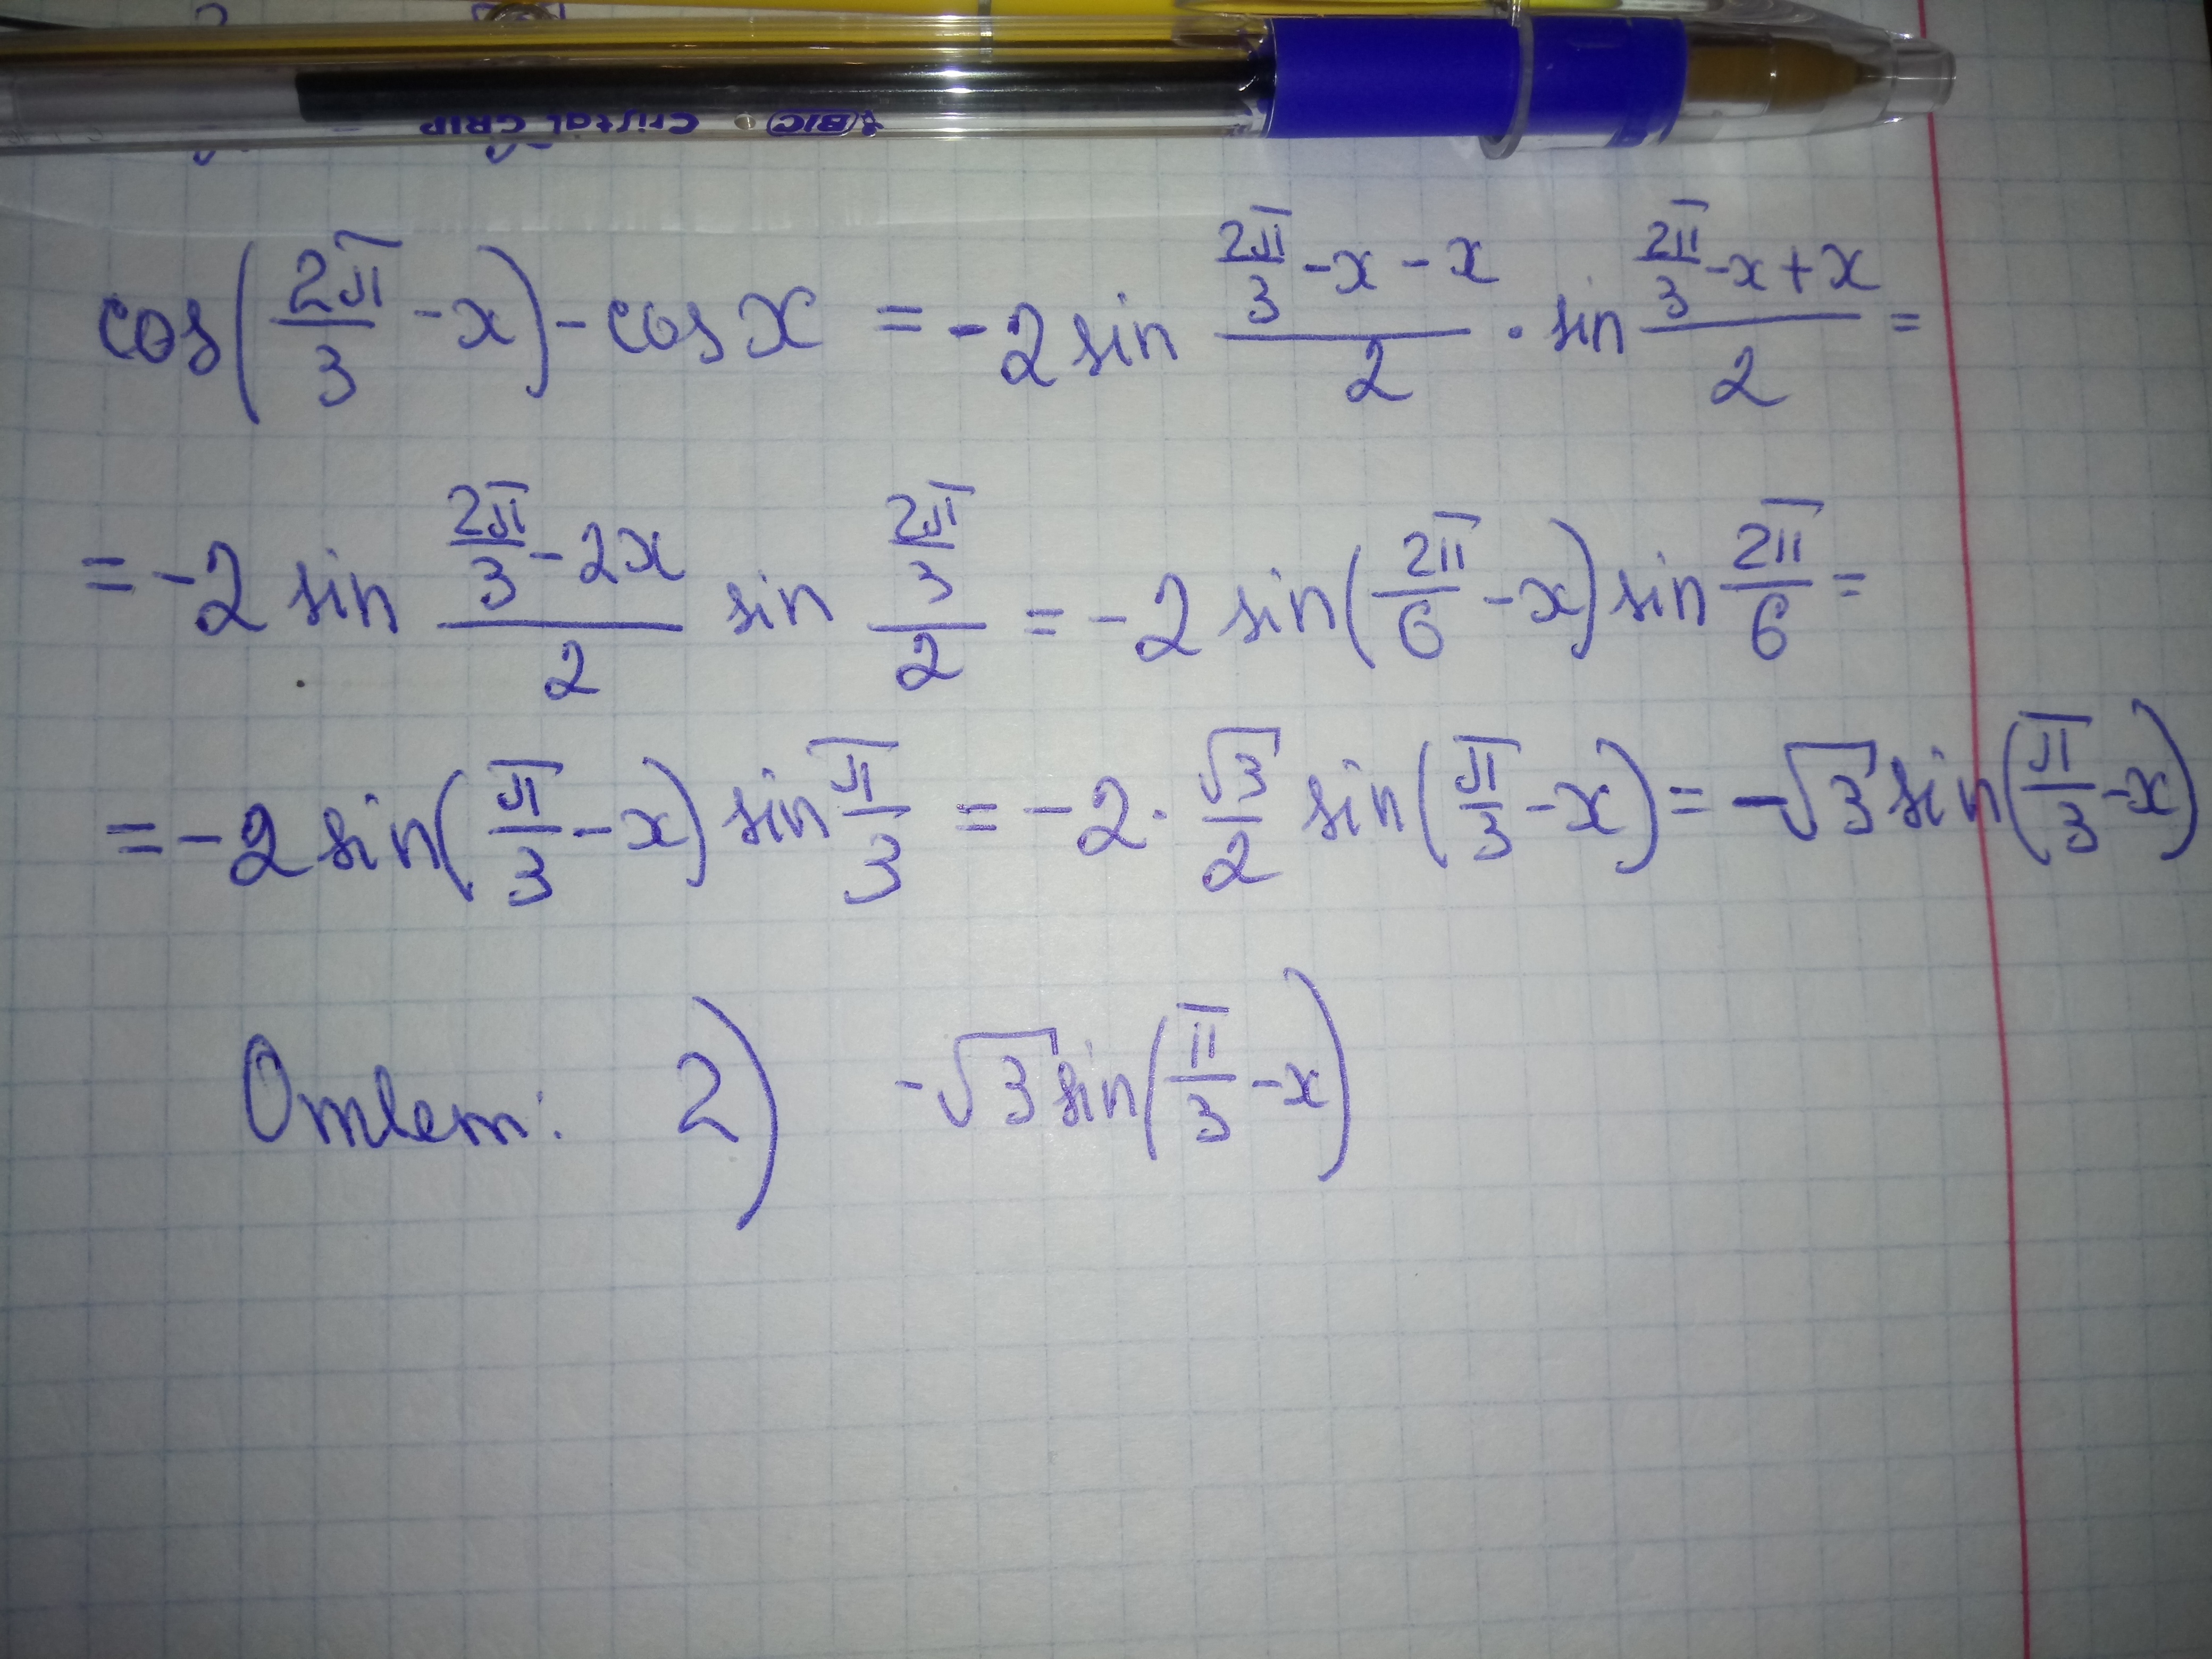 BIC Cristal GRIP
cos(2π/3 - x) - cos x = -2 sin (2π/3 - x - x)/2 · sin (2π/3 - x + x)/2 =
= -2 sin (2π/3 - 2x)/2 sin (2π/3)/2 = -2 sin(2π/6 - x) sin 2π/6 =
= -2 sin(π/3 - x) sin π/3 = -2 · √3/2 sin(π/3 - x) = -√3 sin(π/3 - x)
Ответ: 2) -√3 sin(π/3 - x)